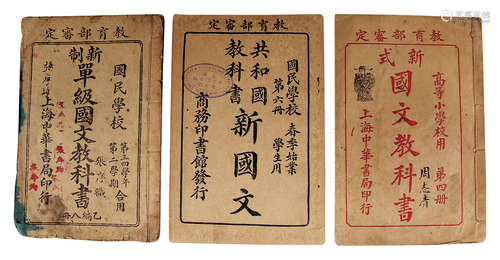 教育部審定
國民學校
第三四學年
第二學期
合用
新制
單級國文教科書
乙編八冊
上海中華書局印行
教育部審定
國民學校
春季始業
第六冊
學生用
共和國
教科書
新國文
商務印書館發行
教育部審定
高等小學校用
第四冊
新式
國文教科書
上海中華書局印行
周志清